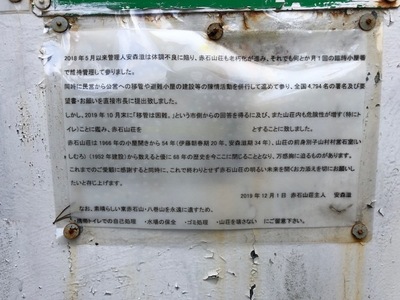 2018年5月以来管理人安森滋は体調不良に陥り、赤石山荘も老朽化が進み、それでも何とか月1回の臨時小屋番
で維持管理して参りました。
同時に民営から公営への移管や避難小屋の建設等の陳情活動を併行して進めて参り、全国4,794名の署名及び要
望書・お願いを直接市長に提出致しました。
しかし、2019年10月末に「移管は困難。」という市側からの回答を得るに及び、また山荘内も危険性が増す(特にト
イレ)ことに鑑み、赤石山荘を とすることに致しました。
赤石山荘は1966年の小屋開きから54年(伊藤朝春期20年、安森滋期34年)、山荘の前身別子山村村営石室(い
しむろ)(1952年建設)から数えると優に68年の歴史を今ここに閉じることとなり、万感胸に迫るものがあります。
これまでのご愛顧に感謝すると同時に、これで終わりとせず赤石山荘の明るい未来を開くお力添えを切にお願いし
たいと存じ上げます。
2019年12月1日 赤石山荘主人 安森滋
なお、素晴らしい東赤石山・八巻山を永遠に遺すため、
トイレでの自己処理 ・水場の保全 ・ゴミ処理 ・山荘を壊さない にご留意下さい。